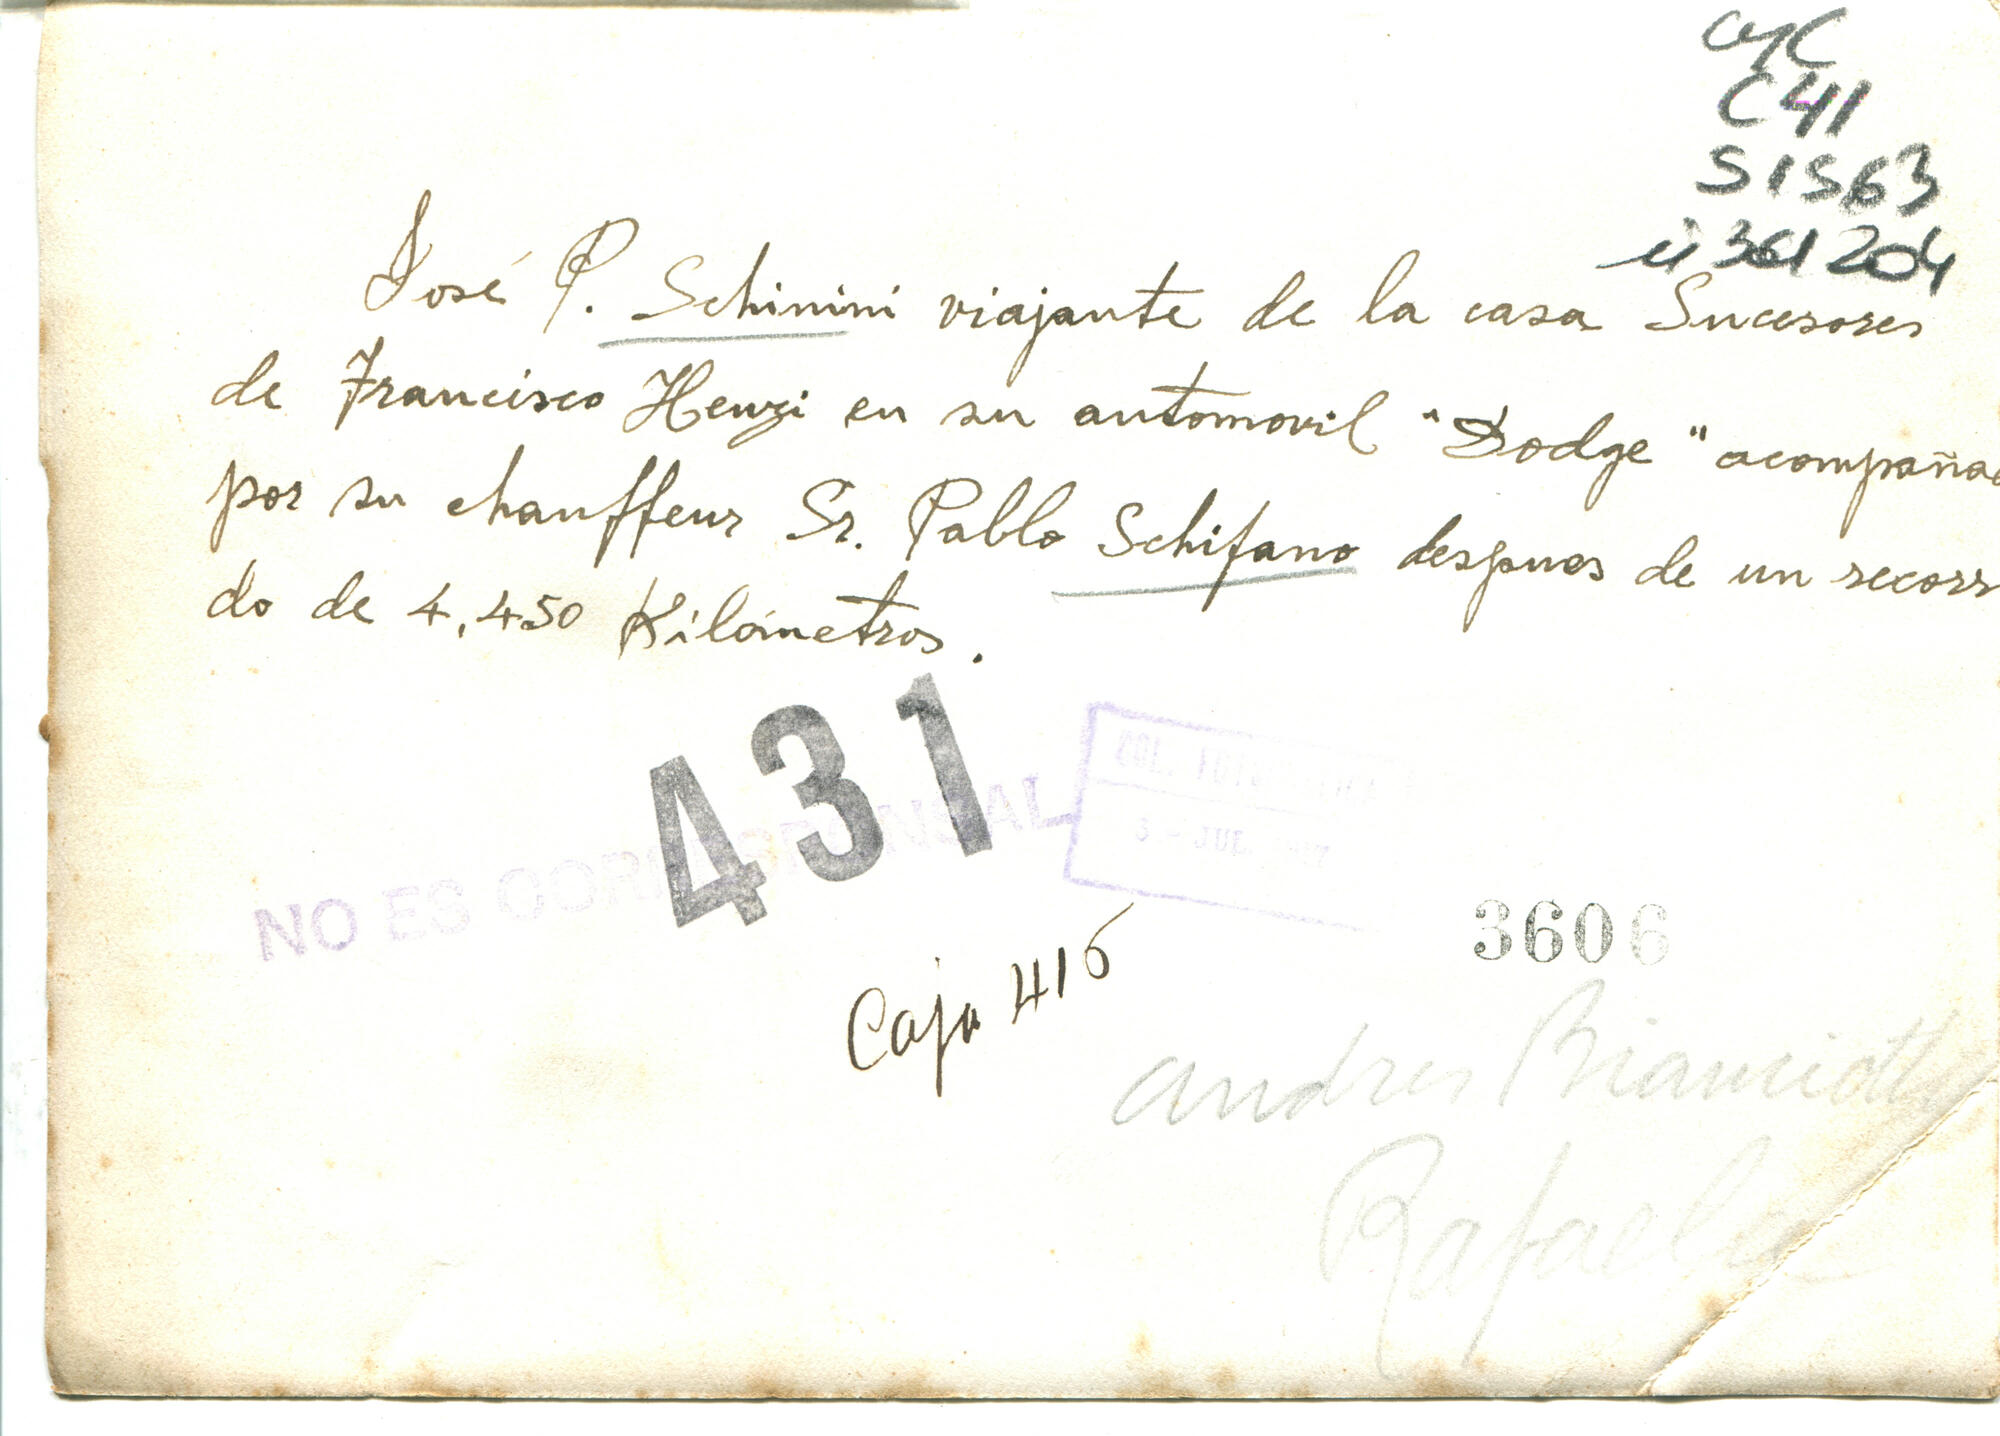 CyC
C41
S1563
ii 361204
José P. Schinini viajante de la casa Sucesores
de Francisco Henzi en su automovil "Dodge" acompañad
por su chauffeur Sr. Pablo Schifano despues de un recorr
do de 4.450 Kilómetros.
431
NO ES CORRESPONSAL
COL. FOTOGRAFICA
3 - JUL.
3606
Caja 416
Andres Bianciotti
Rafaela